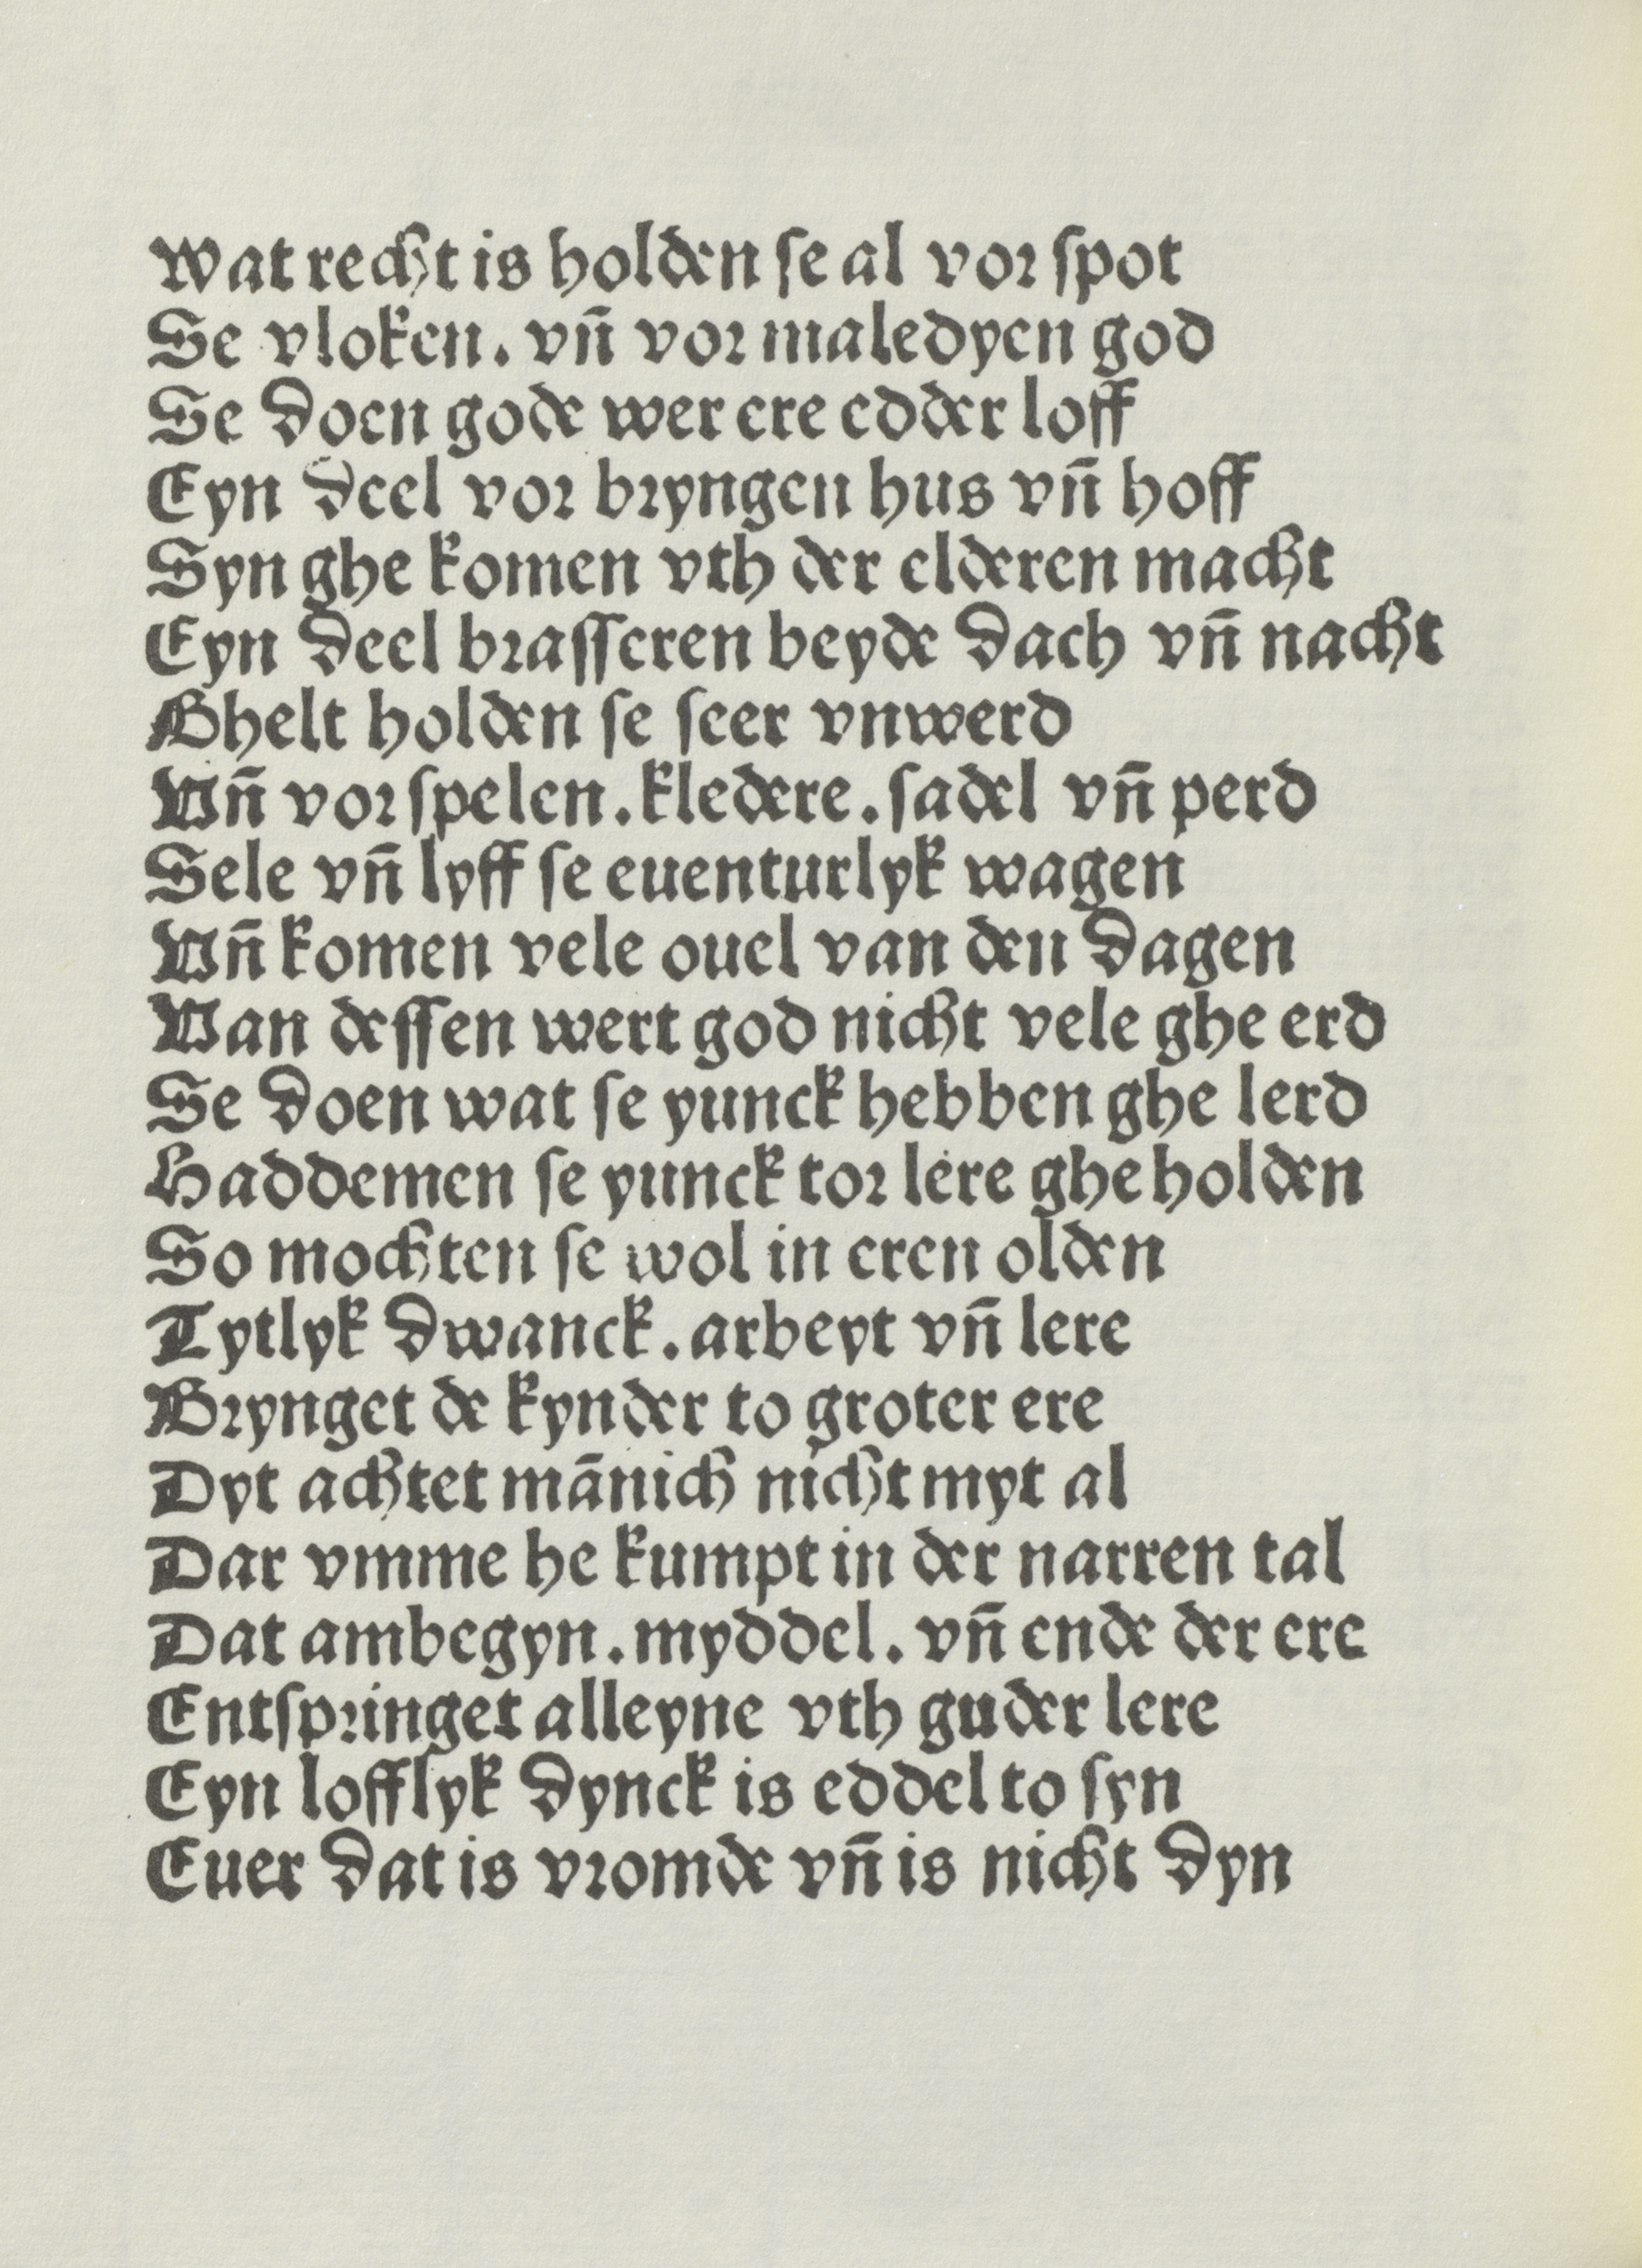 Wat recht is holden ſe al vor ſpot
Se vloken. vn̄ vor maledyen god
Se doen gode wer ere edder loff
Eyn deel vor bryngen hus vn̄ hoff
Syn ghe komen vth der elderen macht
Eyn deel braſſeren beyde dach vn̄ nacht
Ghelt holden ſe ſeer vnwerd
Vn̄ vor ſpelen. kledere. ſadel vn̄ perd
Sele vn̄ lyff ſe euenturlyk wagen
Vn̄ komen vele ouel van den dagen
Van deſſen wert god nicht vele ghe erd
Se doen wat ſe yunck hebben ghe lerd
Haddemen ſe yunck tor lere ghe holden
So mochten ſe wol in eren olden
Tytlyk dwanck. arbeyt vn̄ lere
Brynget de kynder to groter ere
Dyt achtet mānich nicht myt al
Dar vmme he kumpt in der narren tal
Dat ambegyn. myddel. vn̄ ende der ere
Entſpringet alleyne vth guder lere
Eyn lofflyk dynck is eddel to ſyn
Euer dat is vromde vn̄ is nicht dyn